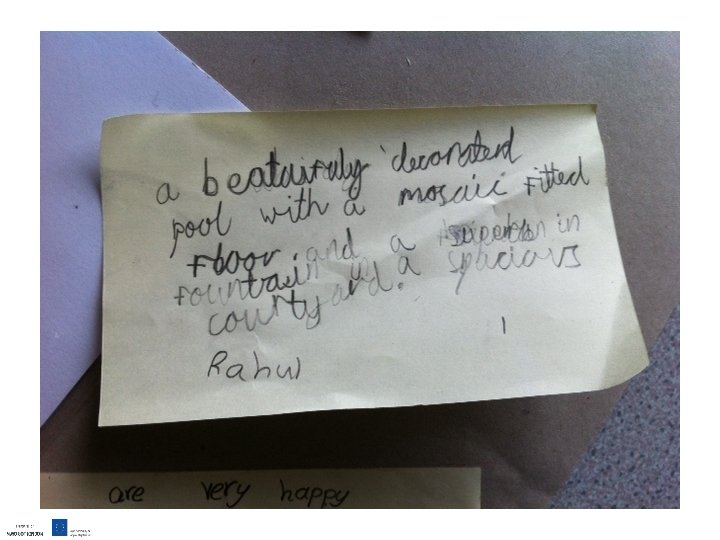 a beataifuly decorated
pool with a mosaic fitted
floor and a in
fountain in a spacious
courtyard.
Rahul
are very happy